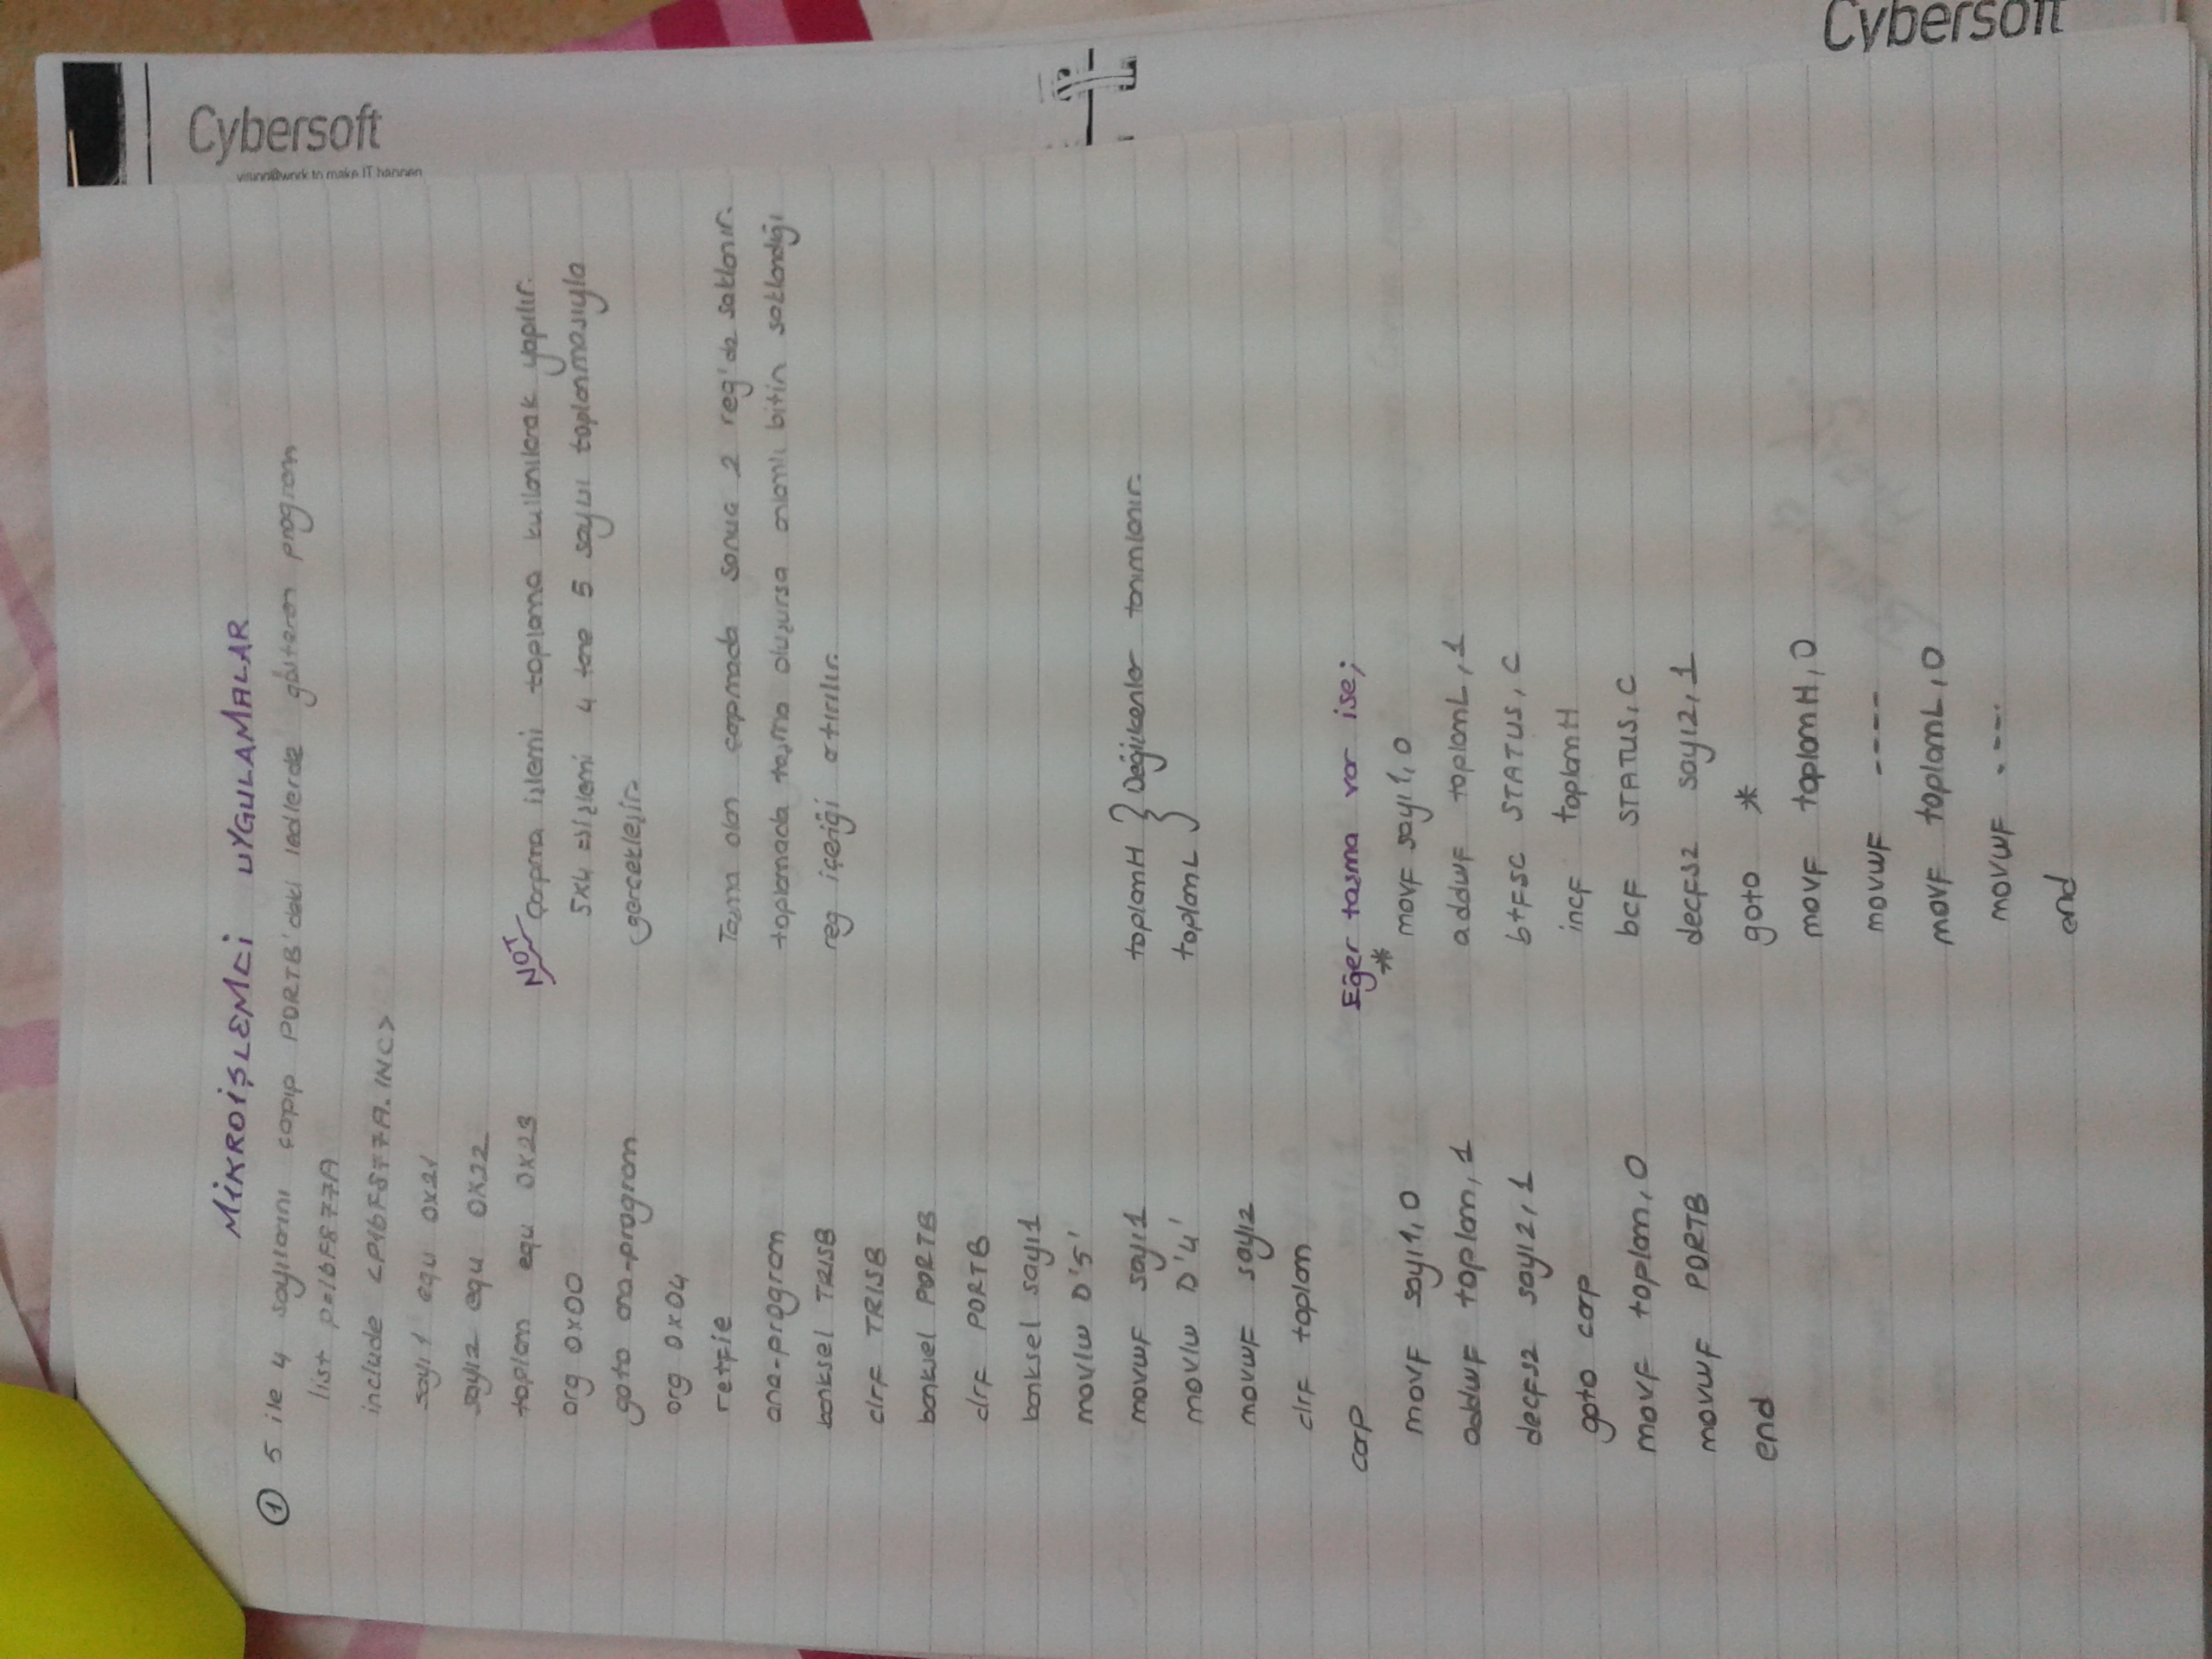 MİKROİŞLEMCİ UYGULAMALAR
① 5 ile 4 sayılarını çarpıp PORTB'deki ledlerde gösteren program
list p=16F877A
include <P16F877A.INC>
sayı1 equ 0x21
sayı2 equ 0X22
toplam equ 0X23
org 0x00
goto ana-program
org 0x04
retfie
ana-program
banksel TRISB
clrf TRISB
banksel PORTB
clrf PORTB
banksel sayı1
movlw D'5'
movwf sayı1
movlw D'4'
movwf sayı2
clrf toplam
carp
movf sayı1,0
addwf toplam,1
decfsz sayı2,1
goto carp
movf toplam,0
movwf PORTB
end
NOT Çarpma işlemi toplama kullanılarak yapılır.
5x4 işlemi 4 tane 5 sayısı toplanmasıyla
gerçekleşir.
Taşma olan çarpmada sonuç 2 reg'de saklanır.
toplamada taşma oluşursa anlamlı bitin saklandığı
reg içeriği artırılır.
toplamH } Değişkenler tanımlanır.
toplamL
Eğer taşma var ise;
* movf sayı1,0
addwf toplamL,1
btfsc STATUS,C
incf toplamH
bcf STATUS,C
decfsz sayı2,1
goto *
movf toplamH,0
movwf ----
movf toplamL,0
movwf ----
end
Cybersoft
Cybersoft